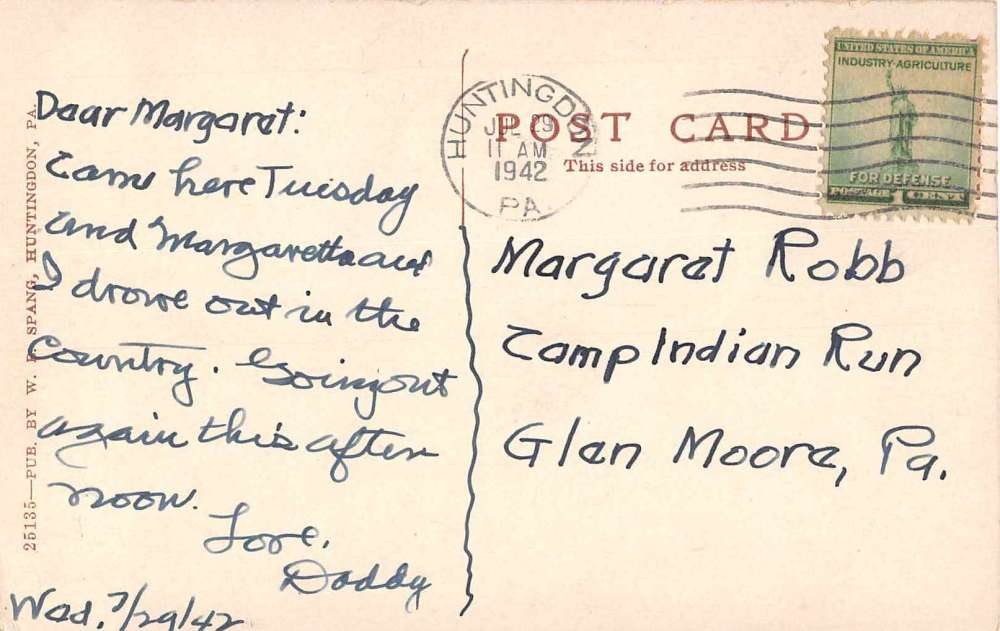 Dear Margaret:
Came here Tuesday
and Margaretta and
I drove out in the
Country. Going out
again this after
noon.
Love,
Daddy
Wed. 7/29/42
25135—PUB. BY W. SPANG, HUNTINGDON, PA.
HUNTINGDON
JUL 29
11 AM
1942
PA.
POST CARD
This side for address
UNITED STATES OF AMERICA
INDUSTRY AGRICULTURE
FOR DEFENSE
POSTAGE 1 CENT
Margaret Robb
Camp Indian Run
Glen Moore, Pa.